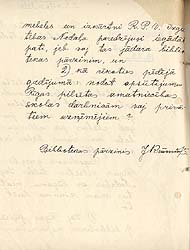 mēbeles un izmērtni R. P. V. Dārz
tēkas Nodaļa paredzējusi iegādā
pati, jeb saj tas jādara biblio
tēkas pārzinim, un
2) kā rīkoties pēdējā
gadījumā: nodot apsūtījumu
Rīgas pilsētas amatniecības
skolas darbnīcām vaj privā=
tiem uzņēmējiem?
Bibliotēkas pārzinis: